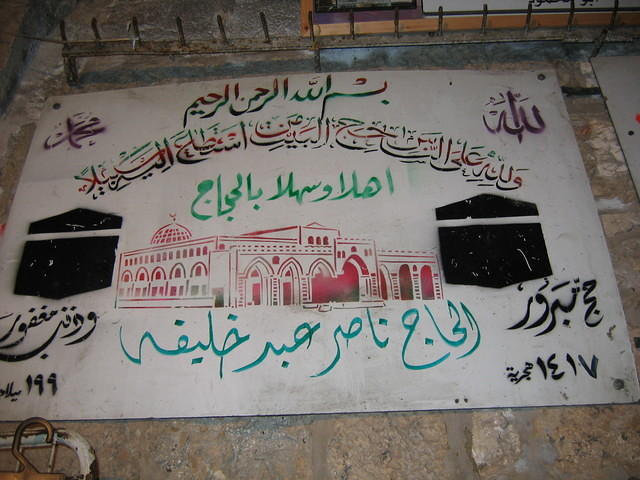 بسم الله الرحمن الرحيم
الله
محمد
ولله على الناس حج البيت من استطاع اليه سبيلا
اهلا وسهلا بالحجاج
حج مبرور
وذنب مغفور
الحاج ناصر عبد خليفه
١٤١٧ هجرية
١٩٩ ميلاد